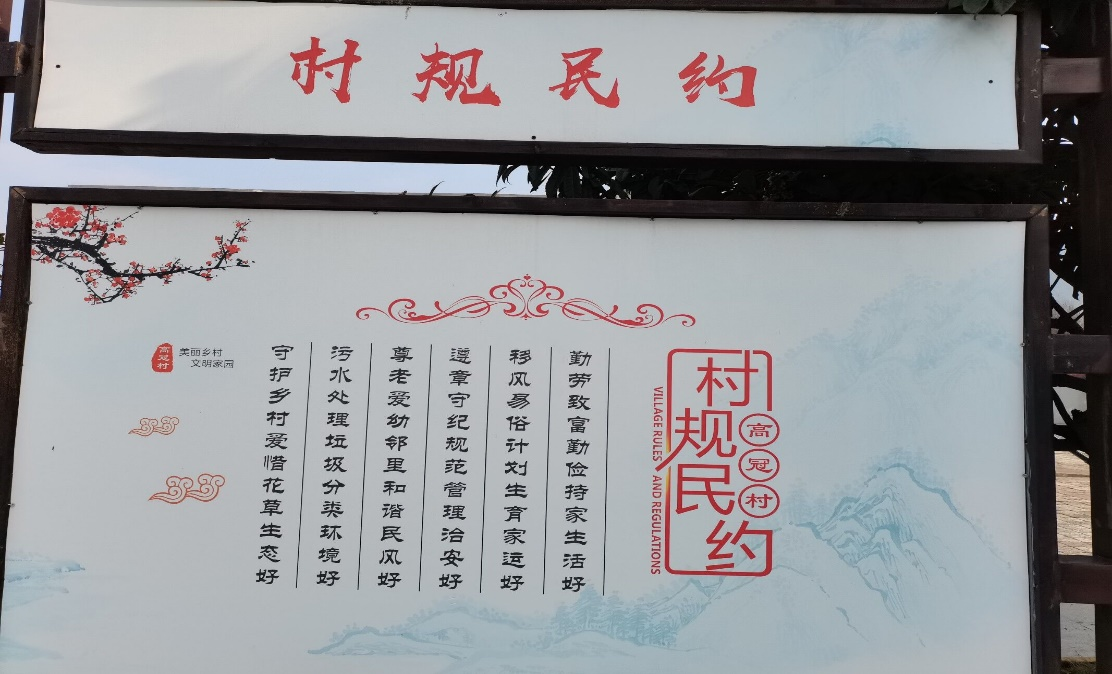 村规民约
村规民约
高冠村
VILLAGE RULES AND REGULATIONS
勤劳致富勤俭持家生活好
移风易俗计划生育家运好
遵章守纪规范管理治安好
尊老爱幼邻里和谐民风好
污水处理垃圾分类环境好
守护乡村爱惜花草生态好
高冠村
美丽乡村
文明家园